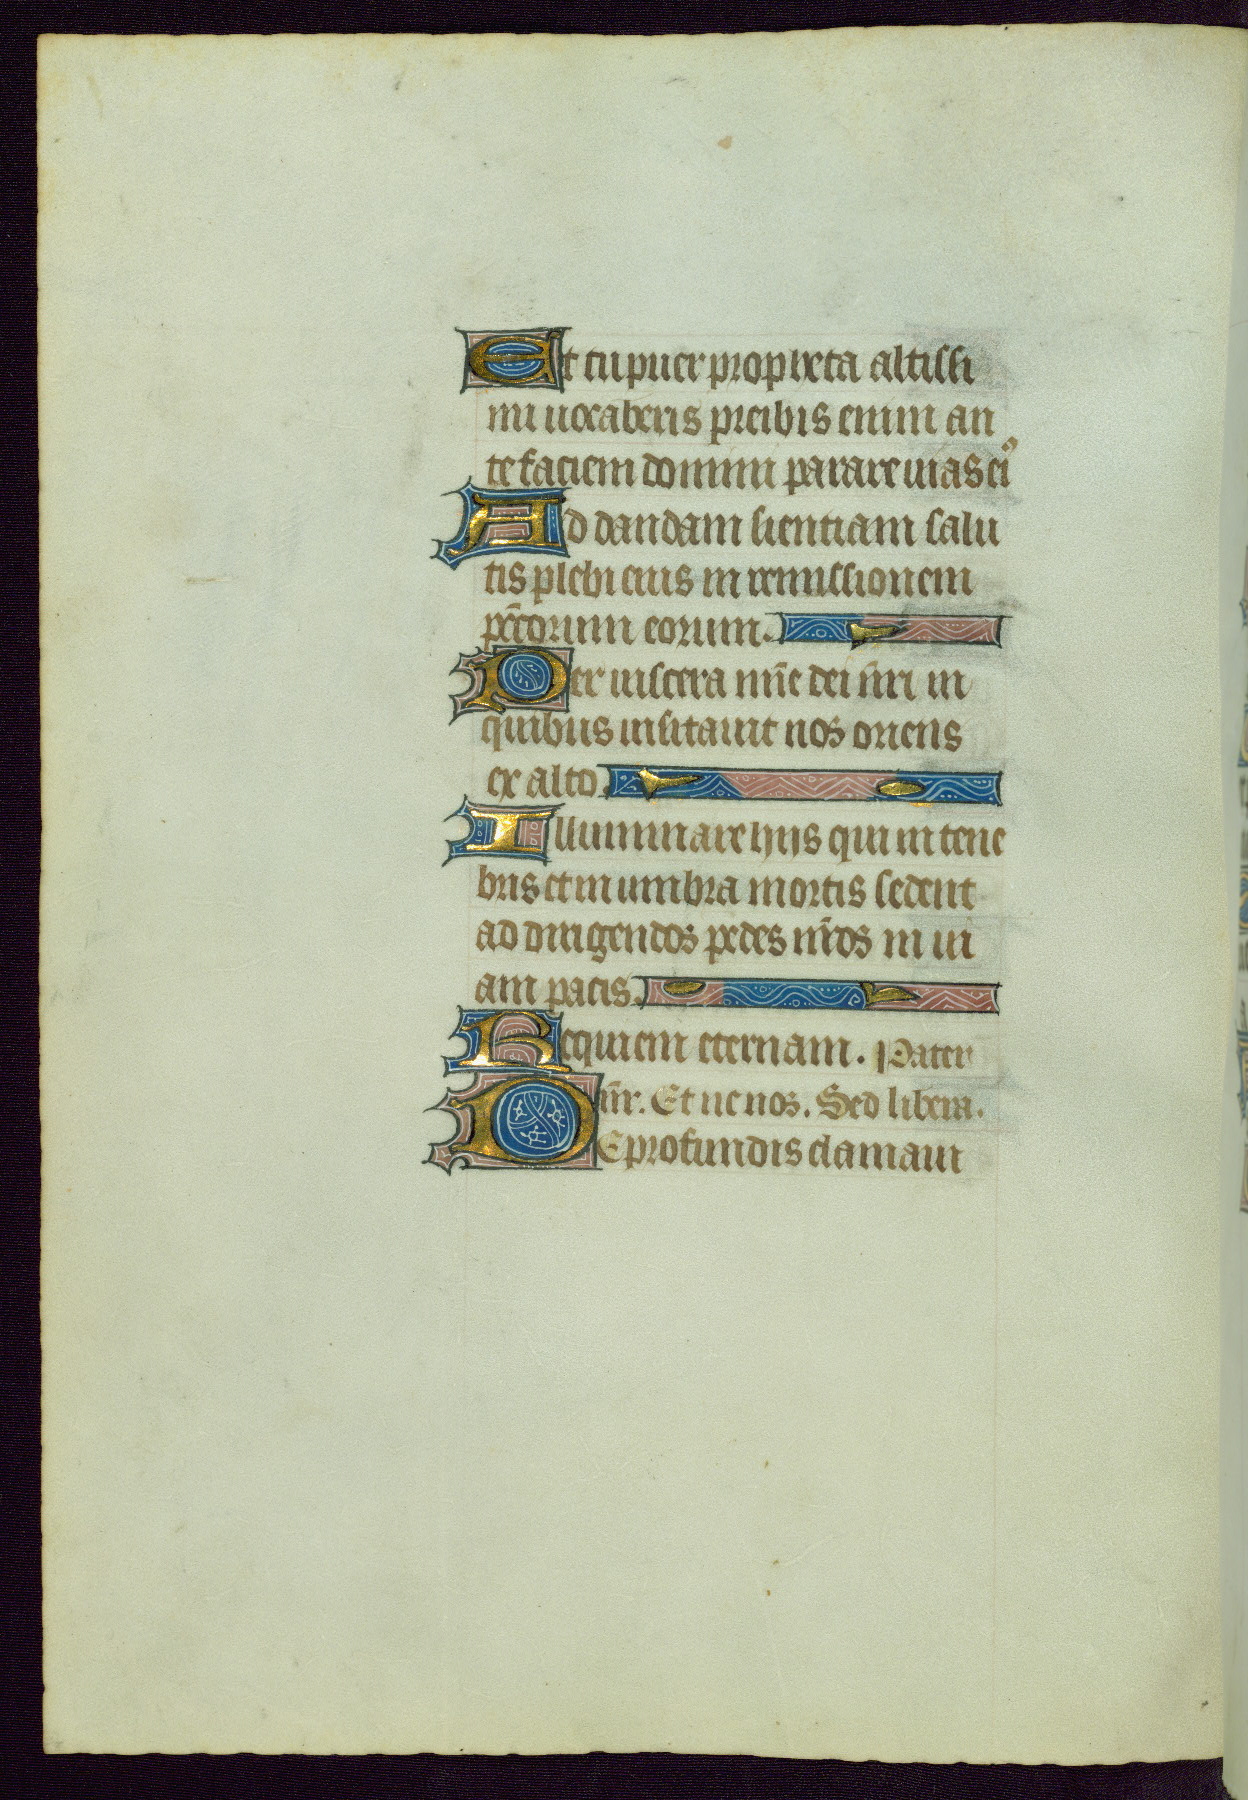 Et tu puer propheta altissi
mi uocaberis preibis enim an
te faciem domini parare uias eiꝰ
Ad dandam sientiam salu
tis plebi eius in remissionem
pct̄orum eorum.
Per uiscera mīe dei nr̄i in
quibus uisitauit nos oriens
ex alto.
Illuminare hijs qui in tene
bris et in umbra mortis sedent
ad dirigendos pedes nr̄os in ui
am pacis.
Requiem eternam. Pater
nr̄. Et ne nos. Sed libera.
DE profundis clamaui